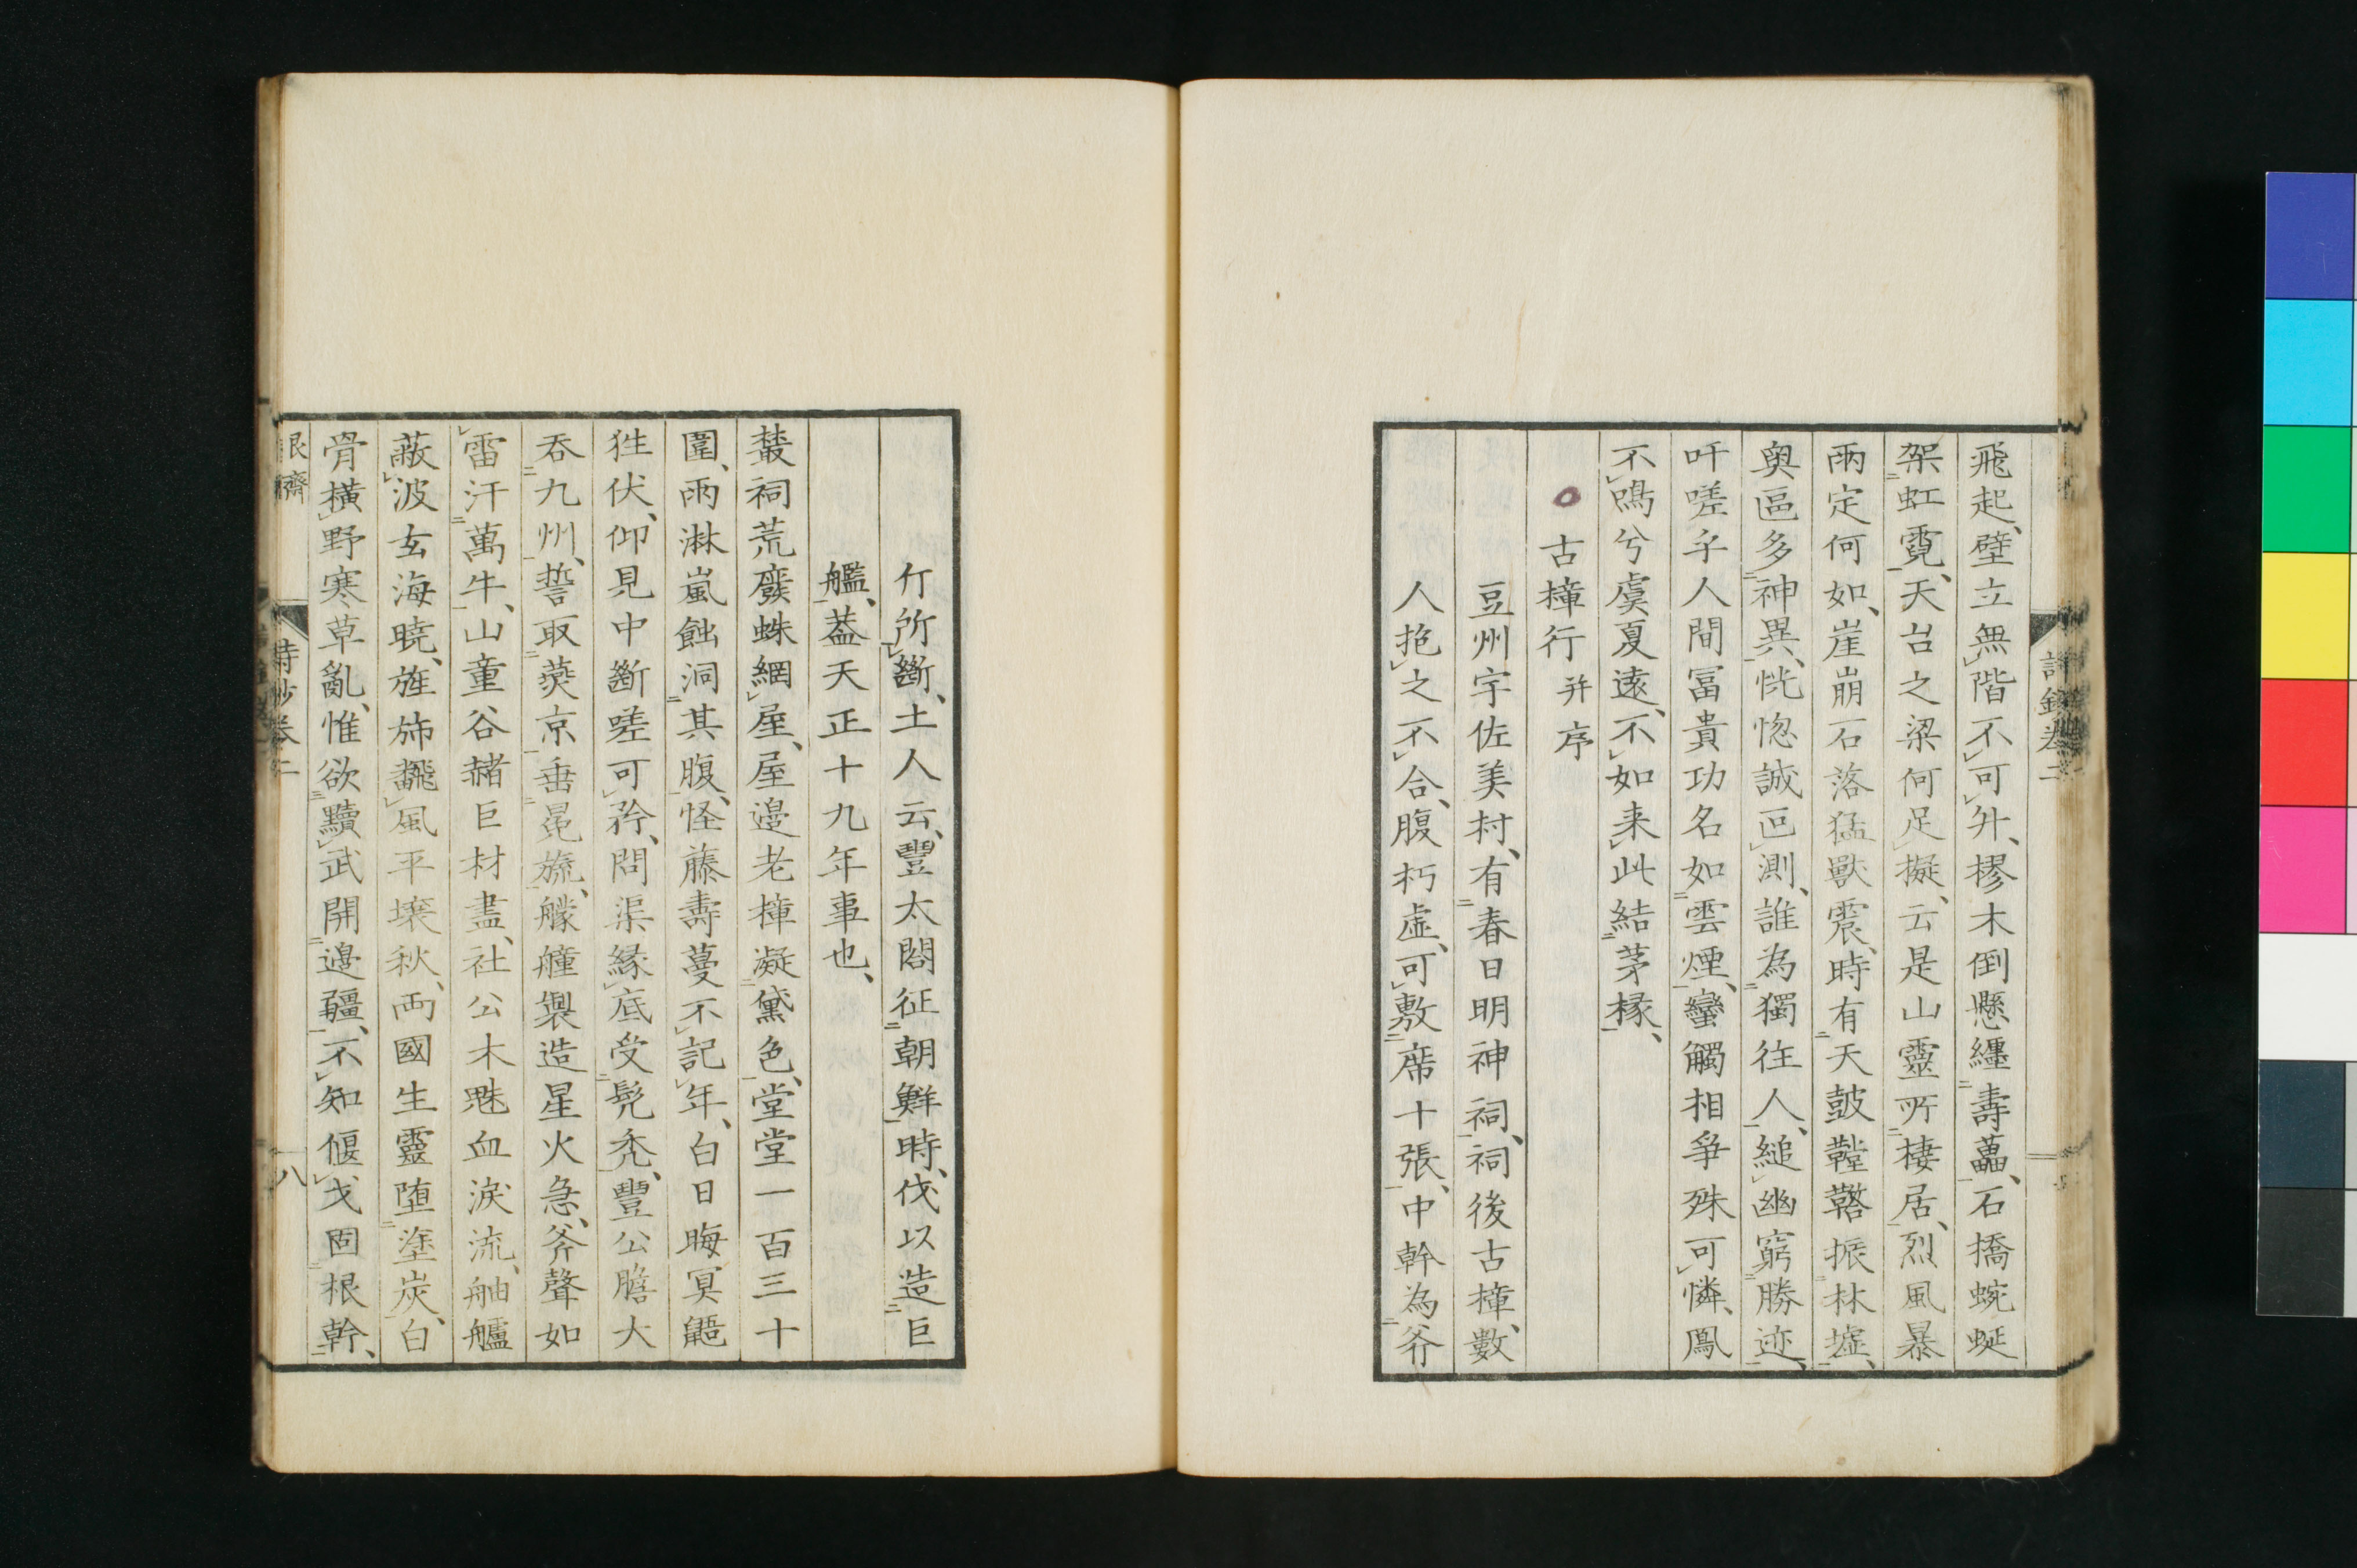 飛起、壁立無階不可升、樛木倒懸纏壽藟、石橋蜿蜒
架虹霓、天台之梁何足擬、云是山靈所棲居、烈風暴
雨定何如、崖崩石落猛獸震、時有天鼓鞺鞳振林墟、
奧區多神異、恍惚誠叵測、誰為獨往人、縋幽窮勝迹、
吁嗟乎人間冨貴功名如雲煙、蠻觸相爭殊可憐、鳳
不鳴兮虞夏遠、不如来此結茅椽、
古樟行并序
豆州宇佐美村、有春日明神祠、祠後古樟、數
人抱之不合、腹朽虛、可敷席十張、中幹為斧
斤所斷、土人云、豐太閤征朝鮮時、伐以造巨
艦、蓋天正十九年事也、
叢祠荒廢蛛網屋、屋邊老樟凝黛色、堂堂一百三十
圍、雨淋嵐蝕洞其腹、怪藤壽蔓不記年、白日晦冥鼯
狌伏、仰見中斷嗟可矜、問渠緣底受髡禿、豐公膽大
吞九州、誓取燕京垂冕旒、艨艟製造星火急、斧聲如
雷汗萬牛、山童谷赭巨材盡、社公木魅血淚流、舳艫
蔽波玄海曉、旌旆飜風平壤秋、両國生靈堕塗炭、白
骨橫野寒草亂、惟欲黷武開邊疆、不知偃戈固根幹、
詩鈔卷二
八